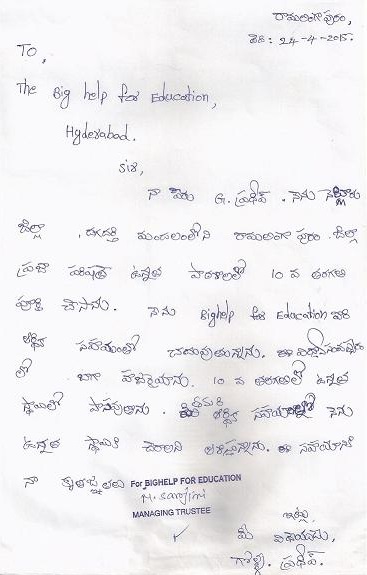 రామలింగాపురం,
తేది: 24-4-2015.
To,
The Big help for Education,
Hyderabad.
Sir,
నా పేరు G. ప్రదీప్. నేను నెల్లూరు
జిల్లా, దగదర్తి మండలంలోని రామలింగా పురం జిల్లా
ప్రజా పరిషత్ ఉన్నత పాఠశాలలో 10 వ తరగతి
పూర్తి చేసాను. నాను Bighelp for Education వారి
ఆర్థిక సహాయంతో చదువుతున్నాను. ఈ విద్యాసంవత్సరం
లో బాగా 10 వ తరగతిలో ఉన్నత
స్థాయిలో పాసవుతాను. మీ ఆర్థిక నేను
ఉన్నత స్థాయికి చేరాలని ఆశిస్తున్నాను. ఈ సహాయానికి
నా కృతజ్ఞతలు
For BIGHELP FOR EDUCATION
M. Sarojini
MANAGING TRUSTEE
ఇట్లు,
మీ విధేయుడు,
ప్రదీప్.